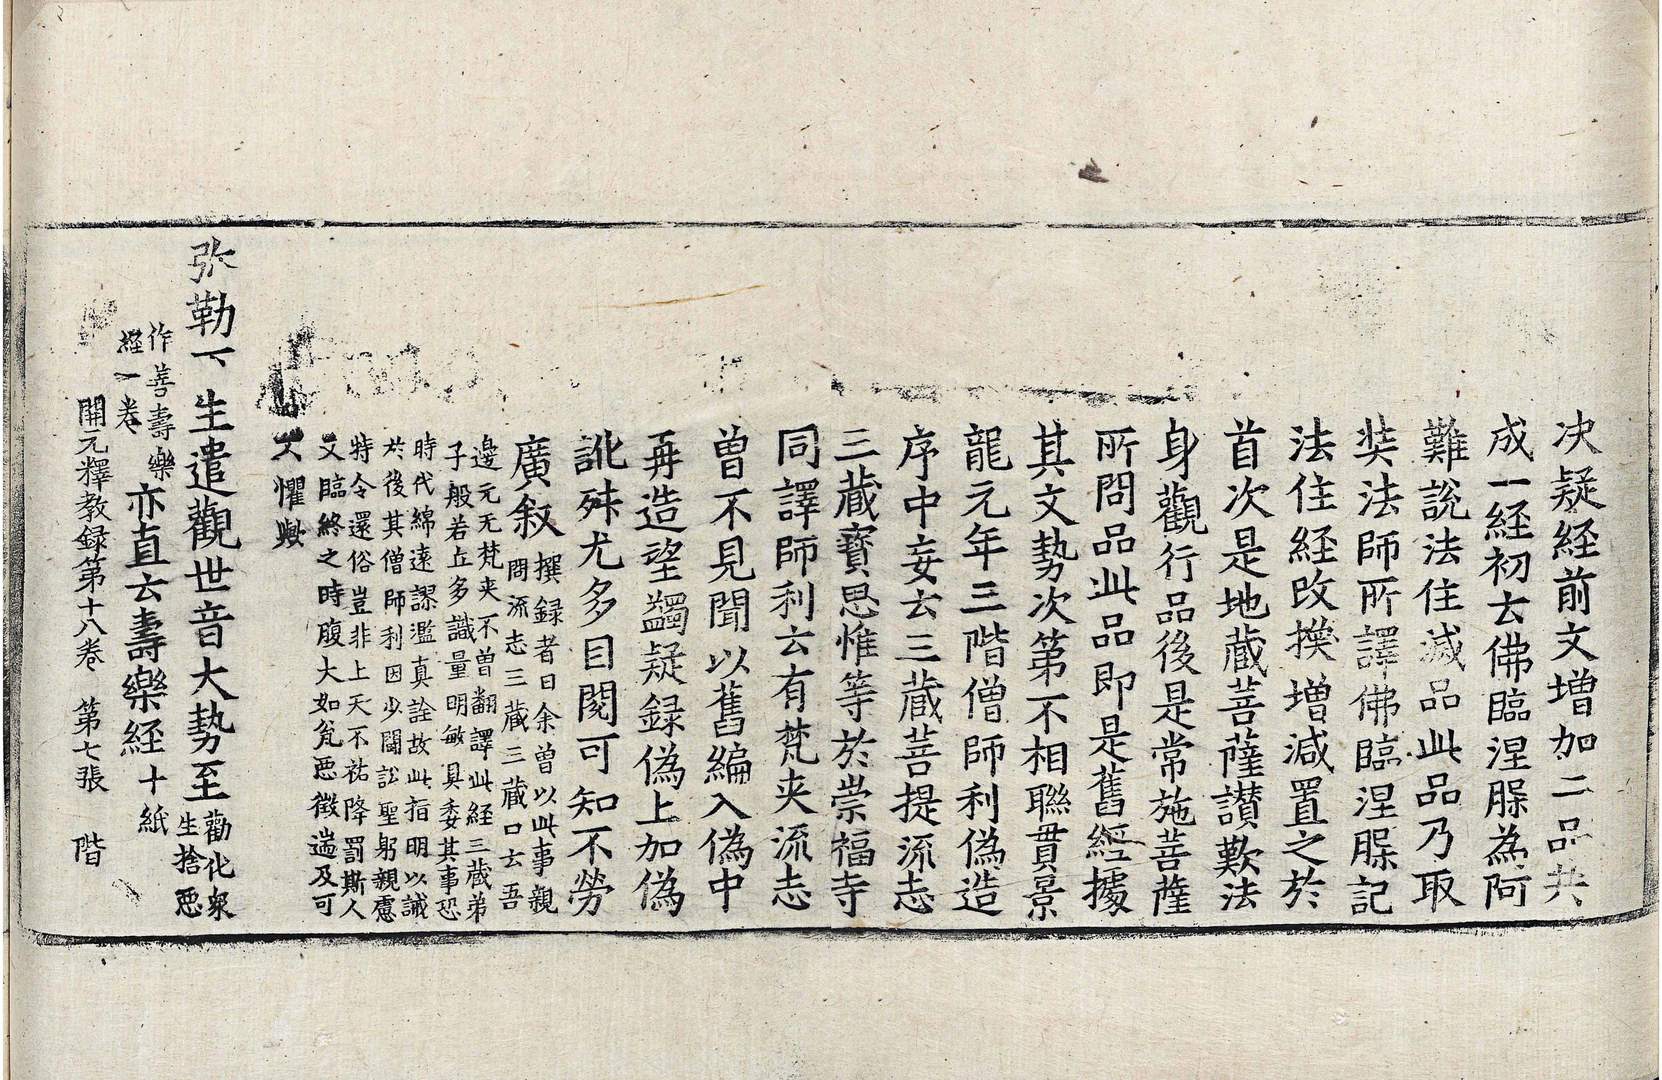 决疑経前文增加二品共
成一経初去佛臨涅脲為阿
難說法住滅品此品乃取
奘法師所譯佛臨涅脲記
法住経改換增減置之於
首次是地藏菩薩讃歎法
身觀行品後是常施菩薩
所問品此品即是舊經據
其文勢次第不相聮貫景
龍元年三階僧師利偽造
序中妄云三藏菩提流志
三藏寶思惟等於崇福寺
同譯師利云有梵夹流志
曾不見聞以舊編入偽中
再造望蠲疑録偽上加偽
訛舛尤多目閱可知不勞
廣叙
撰録者曰余曽以此事親
問流志三藏三藏口云吾
邊元无梵夹不曽翻譯此経三藏弟
子般若丘多識量明敏具委其事恐
時代綿遠謬濫真詮故此指明以誡
於後其僧師利因少鬪訟聖躬親慮
特令還俗豈非上天不祐降罰斯人
又臨終之時腹大如瓮惡徵遄及可
不懼歟
弥勒下生遣觀世音大勢至
勸化衆
生捨惡
作善壽樂
經一卷
亦直云壽樂経
十紙
開元釋教録第十八卷 第七張 階